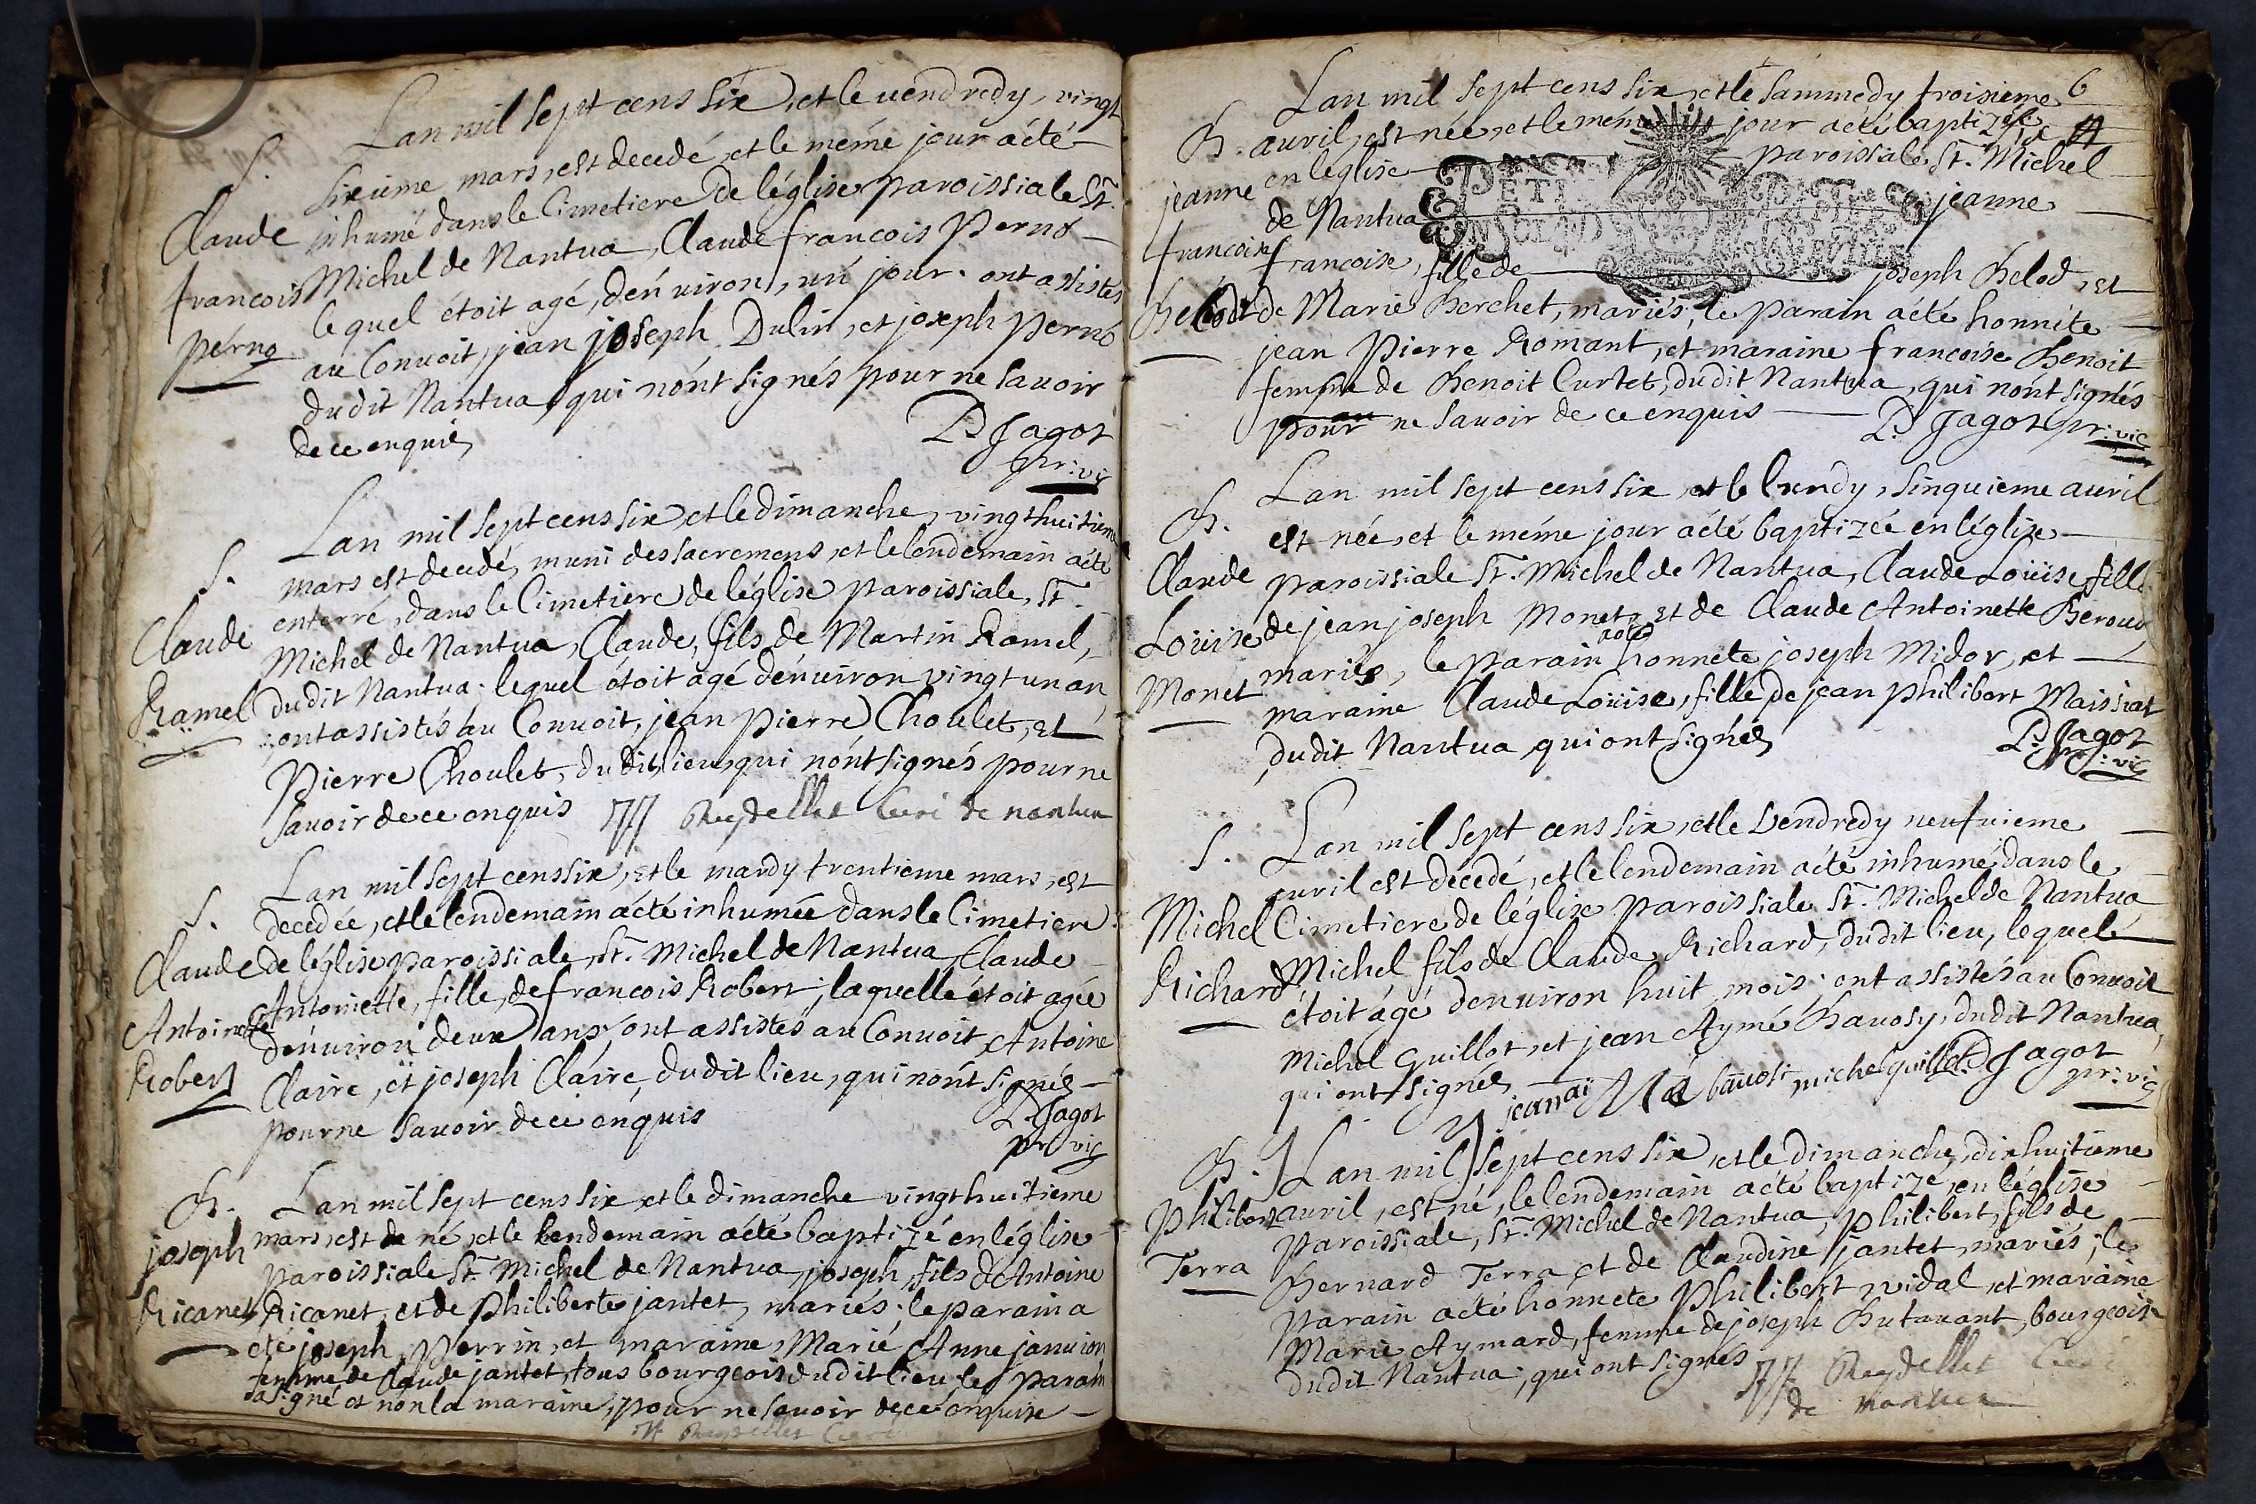 S.
Claude
francois
perno
Lan mil sept cens six, et le vendredy, vingt
sixieme mars, est decedé, et le méme jour a été
inhumé dans le Cimetiere de léglise paroissiale St.
Michel de Nantua, Claude francois Perno
lequel étoit agé, dénuiron, un jour. ont assistés
au Conuoit, jean joseph Dulin, et joseph perno
dudit Nantua, qui nónt signés pour ne sauoir
de ce enquis
D Jagot
pr: vic
S.
Claude
Ramel
Lan mil sept cens six, et le dimanche, vingt huitieme
mars est decedé, muni des sacremens, et le lendemain a été
enterré, dans le Cimetiere de léglise paroissiale, St.
Michel de Nantua, Claude, fils de Martin Ramel,
dudit Nantua. lequel étoit agé dénuiron vingt un an,
ont assistés au Conuoit, jean Pierre Choulet, et
Pierre Choulet, dudit lieu, qui nónt signés pour ne
sauoir de ce enquis Reydellet Curé de nantua
S.
Claude
Antoinette
Robert
Lan mil sept cens six, et le mardy trentieme mars, est
decedée, et le lendemain a été inhumée dans le Cimetiere
de léglise paroissiale, St. Michel de Nantua, Claude
Antoniette, fille, de francois Robert; laquelle étoit agée
dénuiron deux ans, ont assistés au Conuoit, Antoine
Claire, et joseph Claire, dudit lieu, qui nónt signés
pour ne sauoir de ce enquis
D. Jagot
pr vic
B.
joseph
Ricanet
Lan mil sept cens six et le dimanche vingt huitieme
mars, est de né, et le lendemain a été baptizé en léglise
paroissiale St. Michel de Nantua, joseph, fils d'Antoine
Ricanet, et de Philiberte jantet, mariés; le parain a
été joseph, Perrin, et maraine, Marie Anne januion
femme de Claude jantet, tous bourgeois dudit lieu, le parain
a signé et non la maraine, pour ne sauoir de ce enquise
Reydellet Curé
6
B.
jeanne
francoise
Belod
Lan mil sept cens six, et le sammedy troisieme
auril, est née, et le méme jour a été baptizée
en léglise paroissiale St. Michel
de Nantua jeanne
francoise, fille de joseph Belod, et
de Marie Berchet, mariés, le parain a été honnéte
jean Pierre Romant, et maraine francoise Benoit
femme de Benoit Curtet, dudit Nantua, qui nónt signés
pour ne sauoir de ce enquis D. Jagot pr: vic
B.
Claude
Louise
Monet
Lan mil sept cens six, et le lundy, sinquieme auril
est née, et le méme jour a été baptizée en léglise
paroissiale St. Michel de Nantua, Claude Loüise, fille
de jean joseph Monet, et de Claude Antoinette Beroud
mariés, le parain a été honnete joseph Midor, et
maraine Claude Loüise, fille de jean philibert Maissiat
dudit Nantua, qui ont signés
D. Jagot
pr: vic
S.
Michel
Richard
Lan mil sept cens six, et le vendredy neufuieme
auril est decedé, et le lendemain a été inhumé, dans le
Cimetiere de léglise paroissiale St. Michel de Nantua
Michel fils de Claude Richard, dudit lieu, lequel
étoit agé dénuiron huit mois. ont assistés au Conuoit
Michel Guillot, et jean Aymé Bauosy, dudit Nantua,
qui ont signés jean ai Mé bauosi michel guillot D Jagot
pr: vic
B.
Philibert
Terra
Lan mil sept cens six, et le dimanche, dix huitieme
auril, est né, le lendemain a été baptizé, en léglise
paroissiale, St. Michel de Nantua, Philibert, fils de
Bernard Terra et de Claudine jantet, mariés; le
parain a été honnete Philibert vidal, et maraine
Marie Aymard, femme de joseph Butauant, bourgeois
dudit Nantua, qui ont signés Reydellet Curé
de nantua